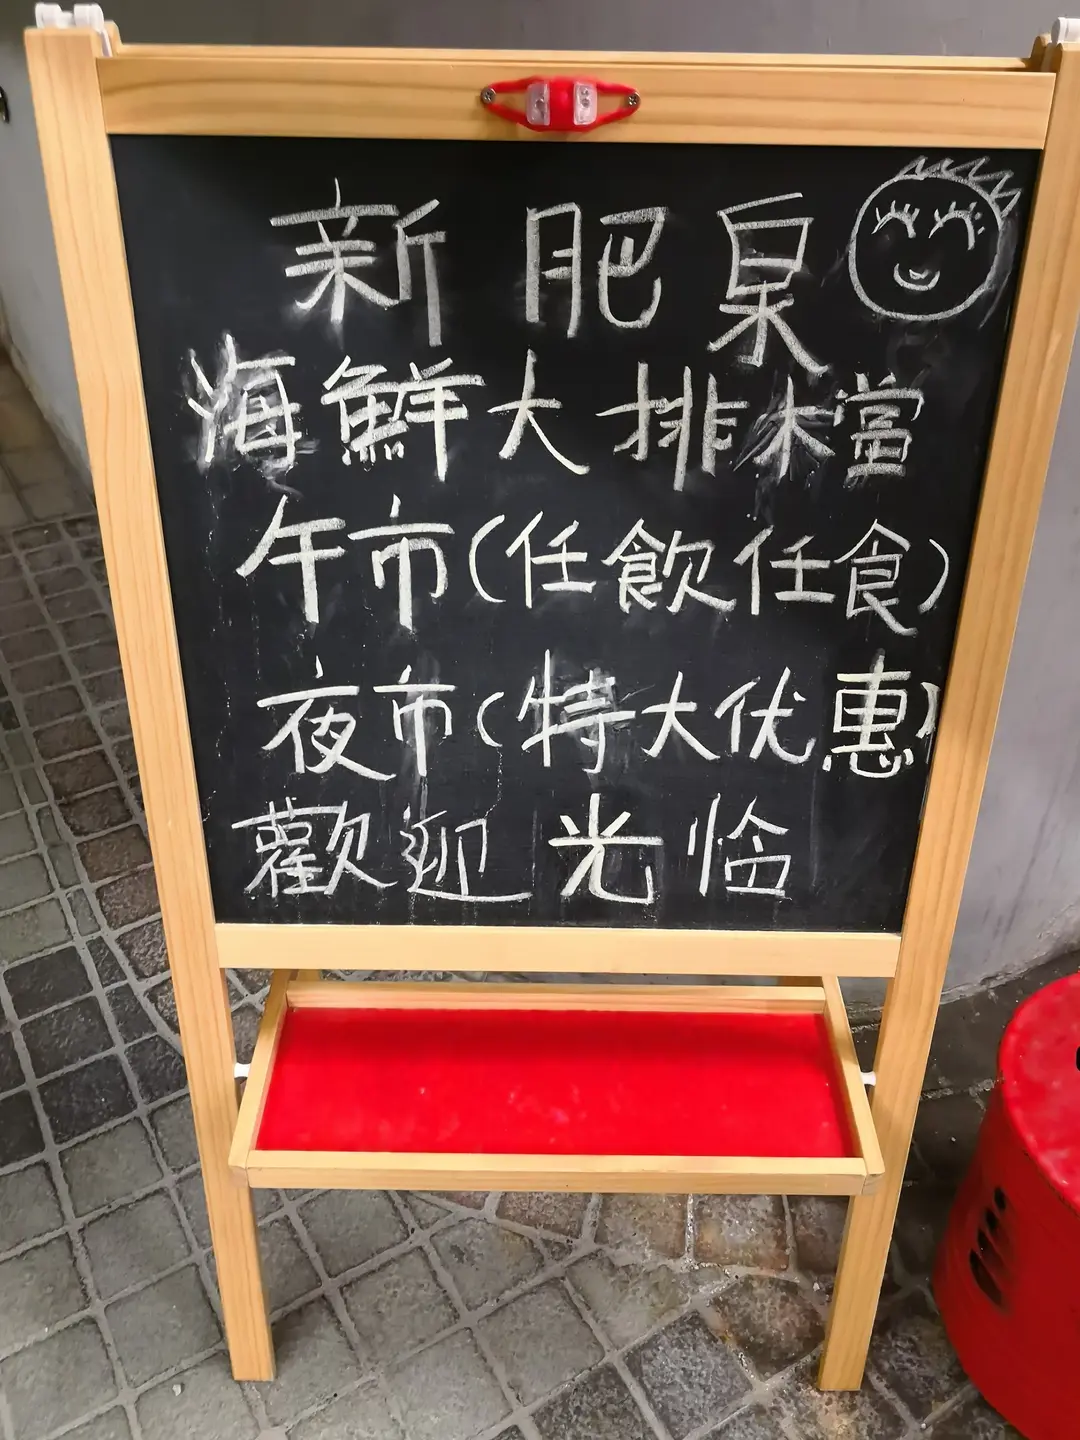 新肥泉
海鮮大排檔
午市(任飲任食)
夜市(特大优惠)
歡迎光临